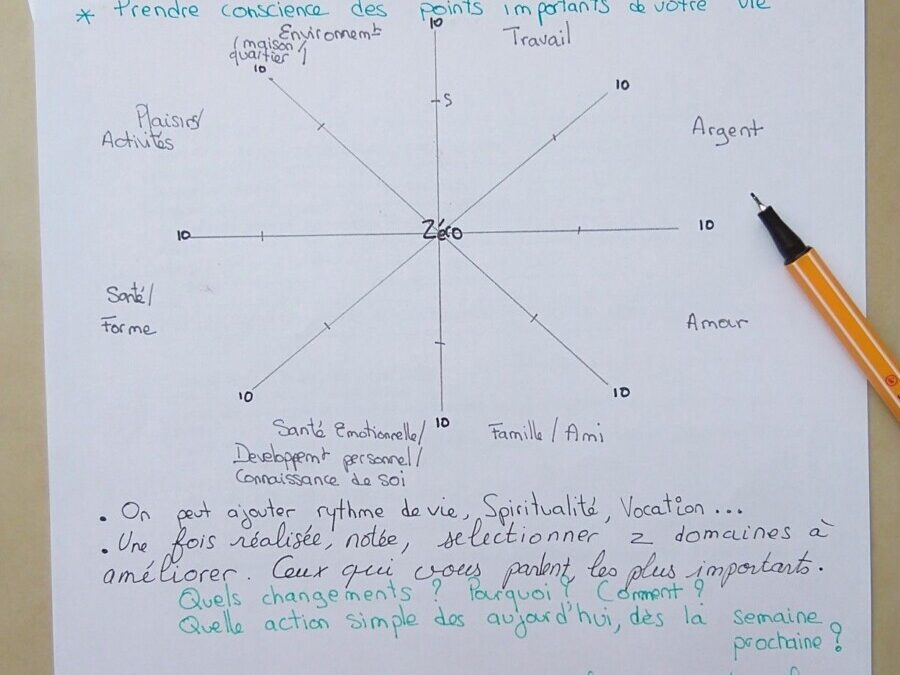 * Prendre conscience des points importants de votre vie
10
Environnemt
(maison/
quartier)
10
Travail
10
5
Plaisirs/
Activités
Argent
10
Zéro
10
Santé/
Forme
Amour
10
10
10
Santé Emotionnelle/
Developpemt personnel/
Connaissance de soi
Famille / Ami
. On peut ajouter rythme de vie, Spiritualité, Vocation...
. Une fois réalisée, notée, selectionner 2 domaines à
améliorer. Ceux qui vous parlent, les plus importants.
Quels changements ? Pourquoi ? Comment ?
Quelle action simple des aujourd'hui, dès la semaine
prochaine ?